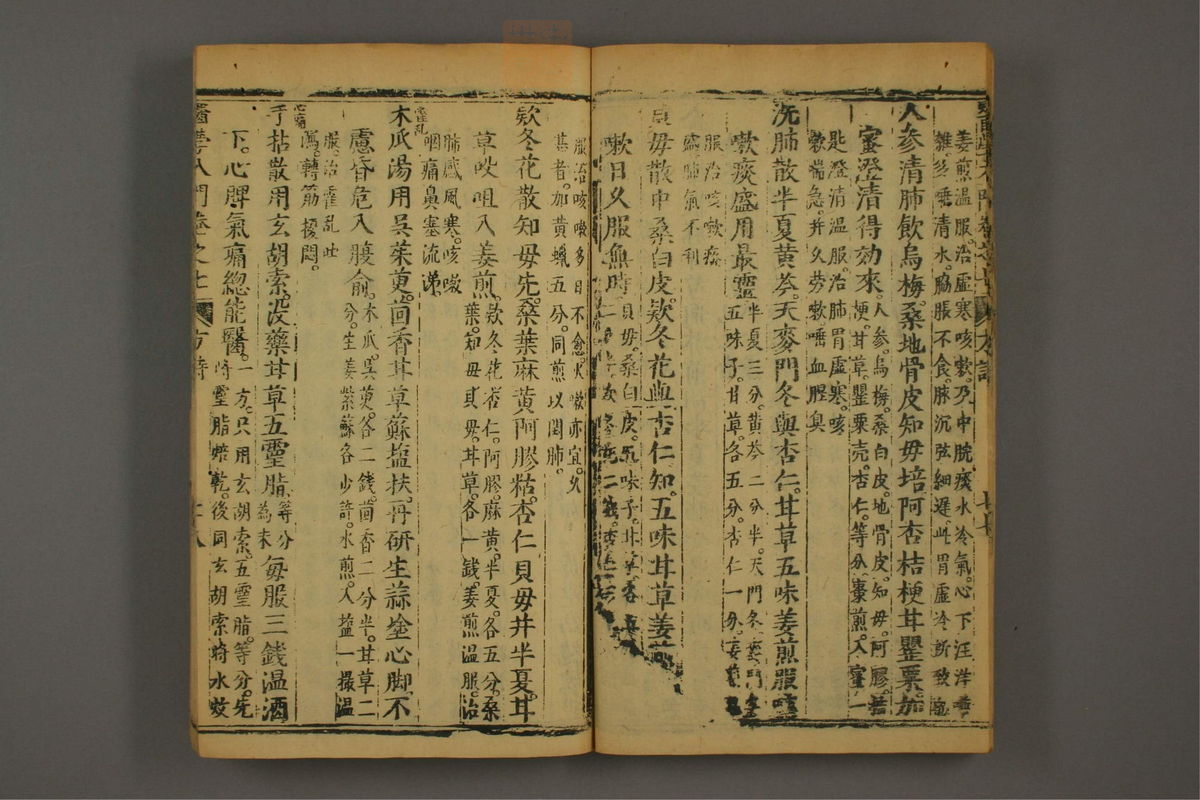 姜煎温服。治虛寒咳嗽。乃中脘痰水冷氣。心下汪洋
雜。多唾清水。脇脹不食。脉沉弦細遲。此胃虛冷所致
人參清肺飲烏梅。桑地骨皮知母培阿杏桔梗甘罌粟加
蜜澄清得効來。
人參。烏梅。桑白皮。地骨皮。知母。阿膠。桔
梗。甘草罌粟壳。杏仁。等分。棗煎。入蜜一
匙。澄清温服。治肺胃虛寒。咳
嗽喘急。并久劳嗽。唾血腥臭
洗肺散半夏黄芩。天麥門冬與杏仁。甘草五味姜煎服咳
嗽痰盛用最靈
半夏三分。黄芩二分半。天門冬麥門冬
五味子。甘草。各五分。杏仁一分。姜
服治咳嗽痰
盛肺氣不利
貝母散中桑白皮。欵冬花與杏仁知。五味甘草姜煎
嗽日久服無時
貝母。桑白皮。五味子。甘草。各
服治咳嗽多日不愈。火嗽亦宜。久
甚者。加黄蠟五分。同煎以閏肺。
欵冬花散知母先。桑葉麻黄阿膠粘。杏仁貝母并半夏。甘
草㕮咀入姜煎。
欵冬花。杏仁。阿膠。麻黄。半夏。各五分。桑
葉。知母貝母。甘草。各一錢。姜煎温服。治
肺感風寒。咳嗽
咽痛鼻塞流涕
霍乱
木瓜湯用吳茱萸。茴香甘草蘇塩扶。再研生蒜塗心脚。不
慮昏危入腹俞。
木瓜。吳萸。各二錢。茴香二分半。甘草二
分。生姜紫蘇各少許。水煎。入塩一撮温
服。治霍乱吐
瀉。轉筋擾悶。
心痛
手拈散用玄胡索。没藥甘草五靈脂。
等分
為末
每服三錢温酒
下。心脾氣痛總能醫。
一方。只用玄胡索。五靈脂。等分。先
將靈脂娘乾。後同玄胡索將水煎
醫學入門卷之七